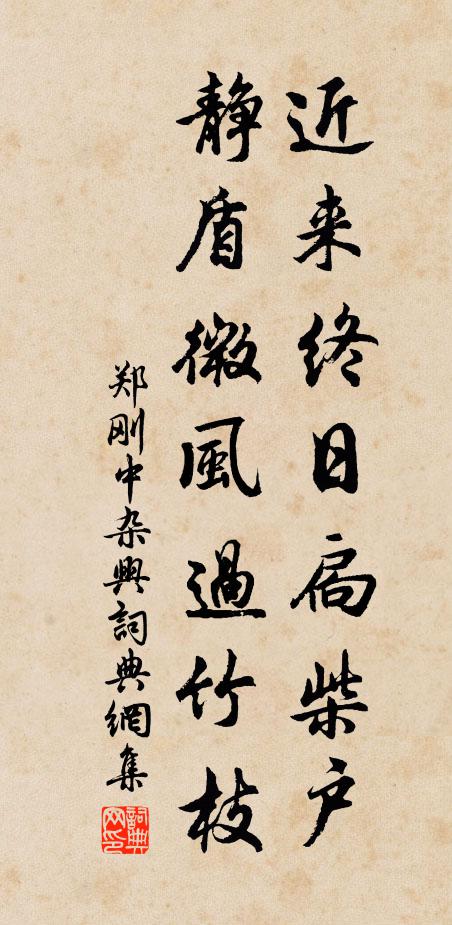 近来终日扃柴户
静盾微風過竹枝
郑刚中杂興詞典網集
詞典网印